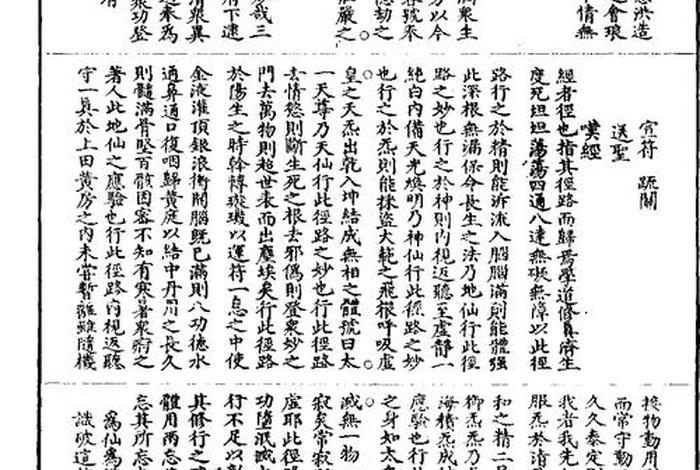 悉洪造
之會琅
情無
眾生
方以今
容號奉
億劫之
莊嚴之
多哉三
府下逮
清眾異
通奉為
眾功登
者
宣符 疏關
送聖
嘆經
經者徑也指其徑路而歸焉聖道修真濟生
度死坦坦蕩蕩四通八達無礙無障以此徑
路行之於精則能泝流入腦腦滿則能體強
此深根無漏保命長生之法乃地仙行此徑
路之妙也行之於神則內視返聽至虛靜一
純白內備天光煥明乃神仙行此徑路之妙
也行之於炁則能採盜大範之飛根呼吸虛
皇之天炁出乾入坤結成無相之體號曰太
一天尊乃天仙行此徑路之妙也行此徑路
去情慾則斷生死之根去邪偽則登眾妙之
門去萬物則超世表而出塵埃矣行此徑路
於陽生之時幹轉璇璣以運符一息之中使
金液灌頂銀浪衝關腦既已滿則八功德水
通鼻通口復咽歸黃庭以結中丹田之長久
則髓滿骨堅百骸固密不知有寒暑眾病之
著人此地仙之應驗也行此徑路內視返聽
守一真於上田黃房之內未嘗暫離雖隨機
接物動用
而常守勤
久久泰定
我者我先
服炁於清
和之精二品
御炁炁乃
海積炁成
應驗也行
之身如太
滅無一物
寂矣常寂
虛耶此徑
功墮泯滅
行不足以
其修行之
體用兩忘
忘其所忘
為仙為
識破這